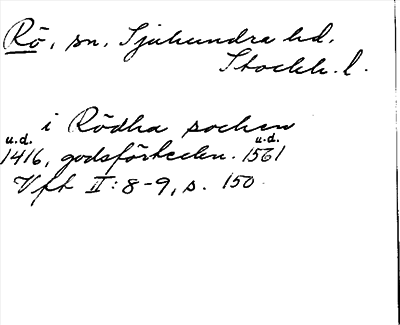 Rö, sn, Sjuhundra hd.
Stockh. l.
i Rödha sochen
u.d. u.d.
1416, godsförteckn. 1561
Vft II: 8-9, s. 150